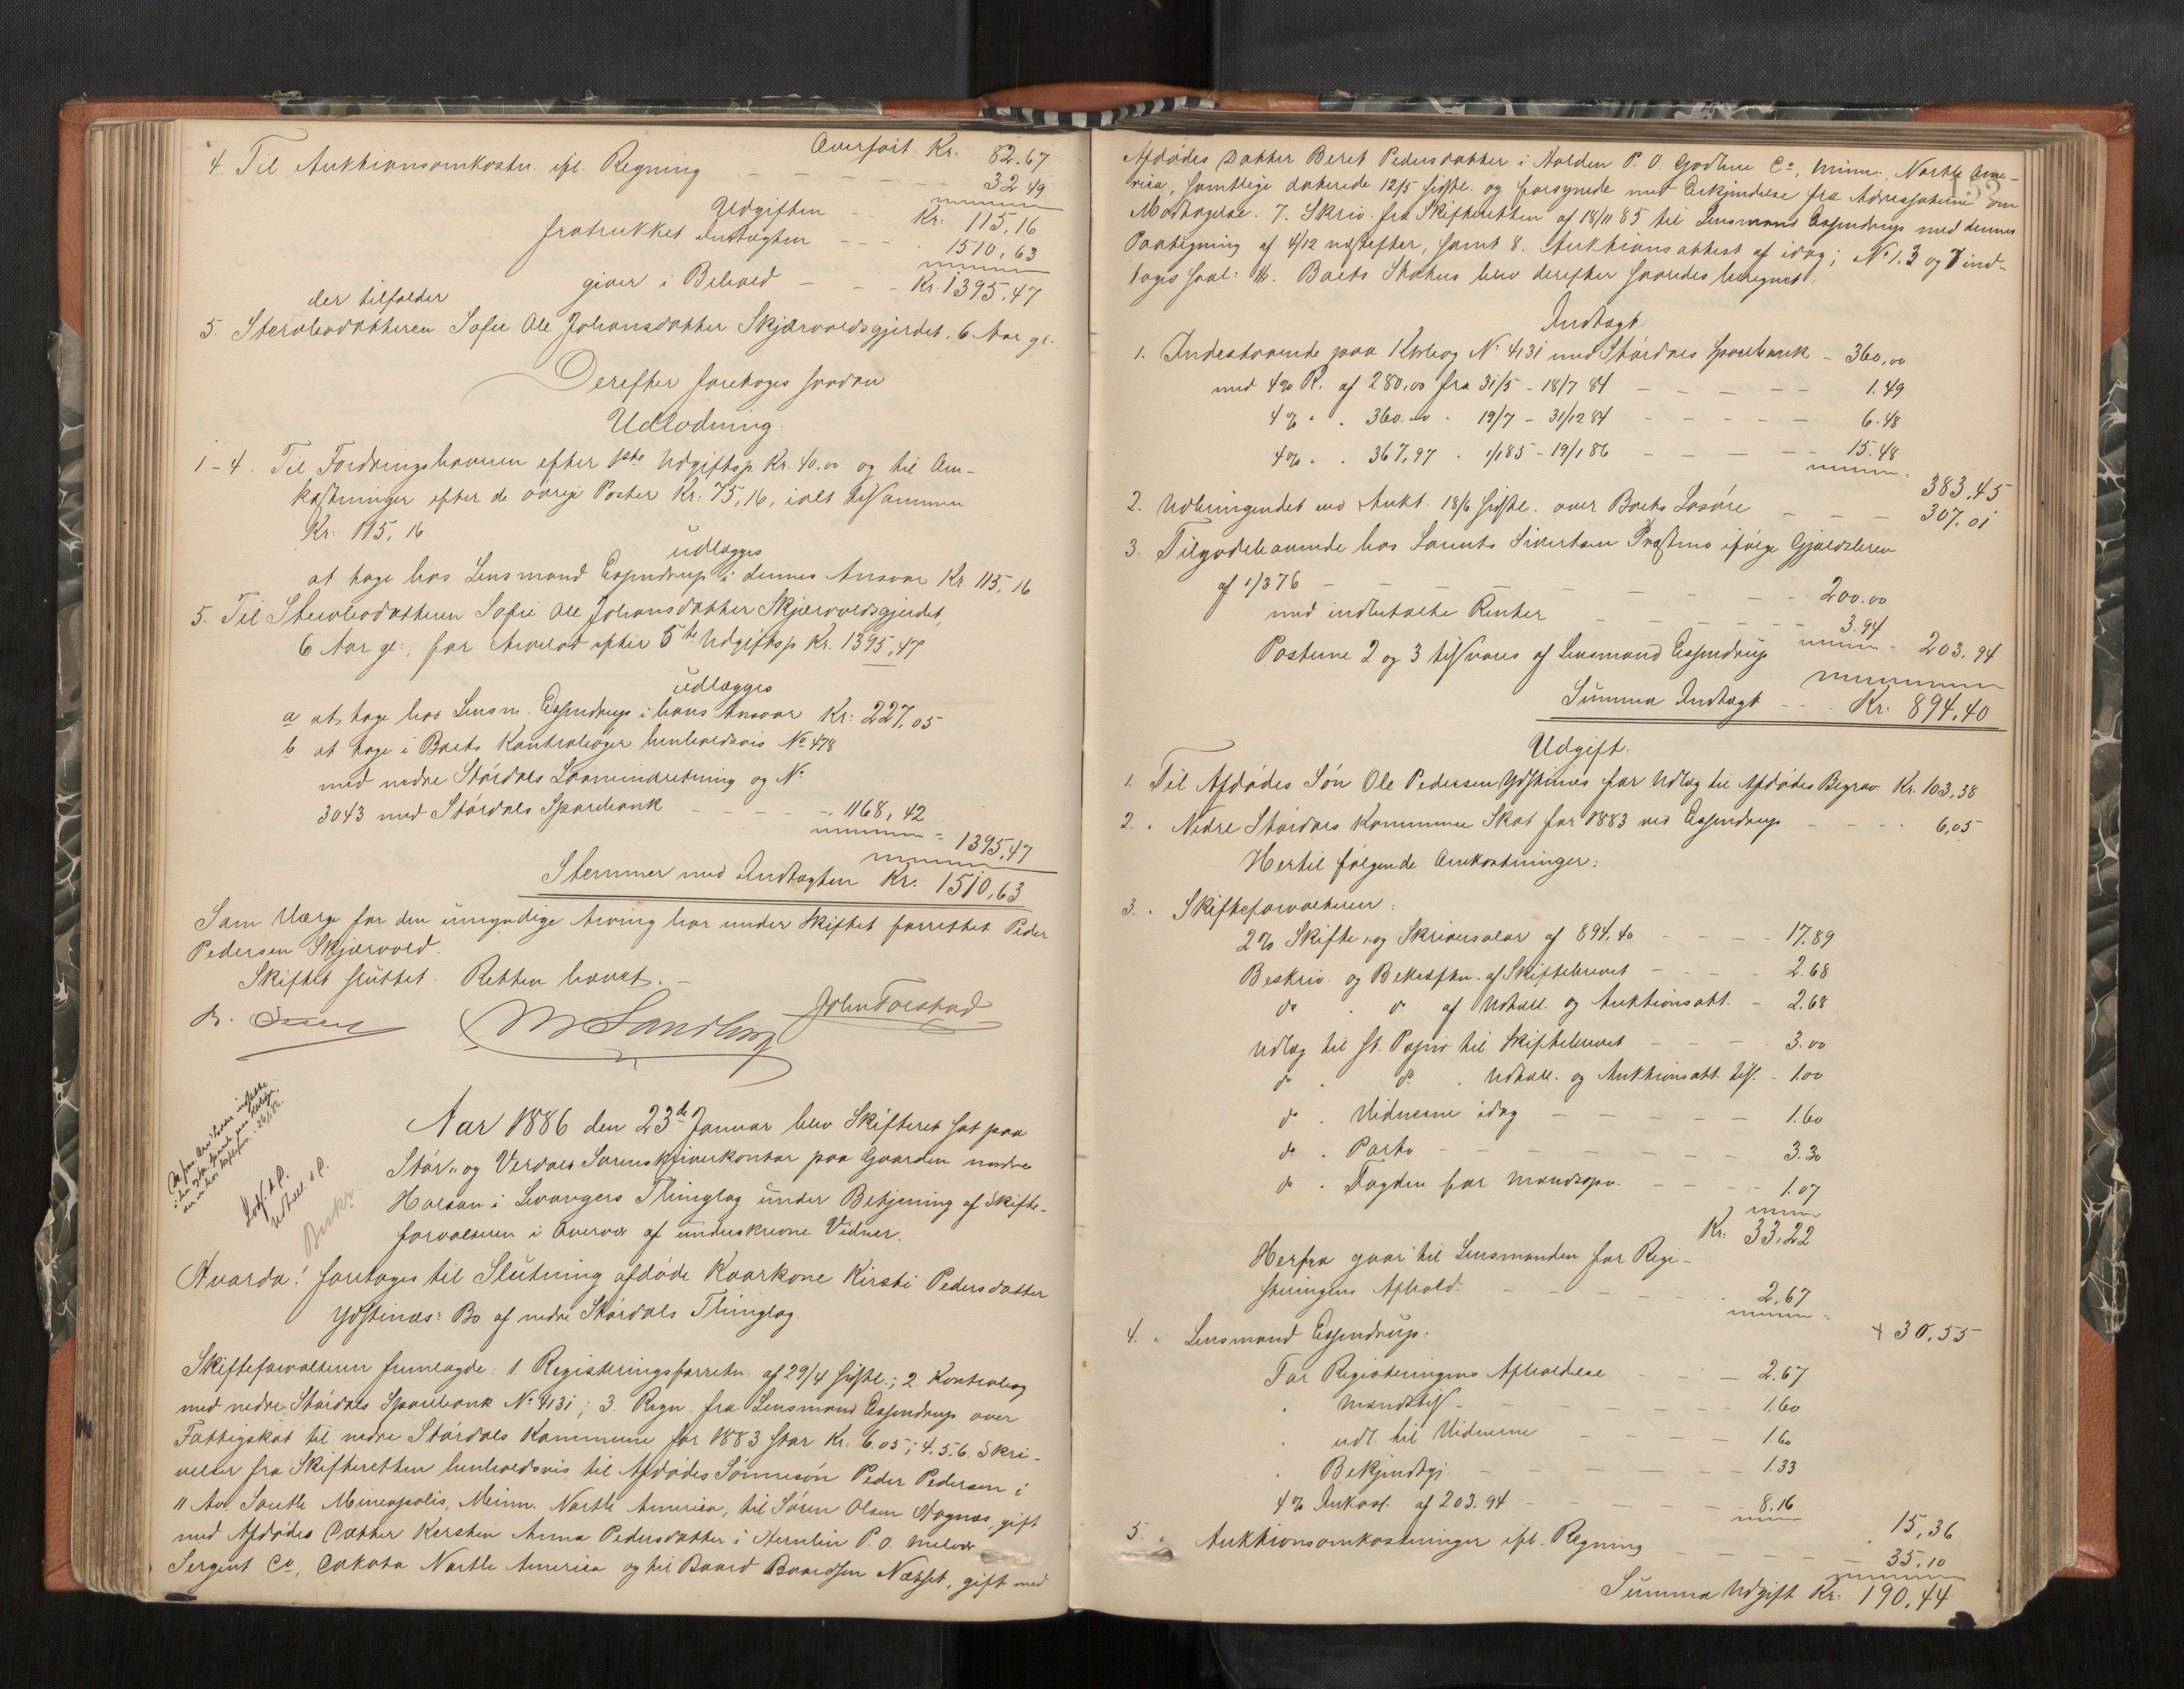 Overført Kr. 82.67
4. Til Auktionsomkostn. ifl. Regning — — — — — 32 49
Udgiften — Kr. 115,16
fratrukket Indtægten — — — 1510,63
giver i Behold — — Kr. 1395,47
der tilfalder
5. Stervbodatteren Sofie Ole Johansdatter Skjærvoldsgjerdet, 6 Aar gl.
Derefter foretoges saadan
Udlodning:
1-4. Til Fordringshaveren efter 1ste Udgiftsp. Kr. 40.00 og til Om-
kostninger efter de øvrige Poster Kr. 75,16, ialt tilsammen
Kr. 115,16
udlægges
at tage hos Lensmand Essendrup i dennes Ansvar Kr. 115,16
5. Til Stervbodatteren Sofie Ole Johansdatter Skjærvoldsgjerdet,
6 Aar gl., for Arvelod efter 5te Udgiftsp. Kr. 1395,47
udlægges
a at tage hos Lensm. Essendrup i hans Ansvar Kr: 227,05
b at tage i Boets Kontrabøger henholdsvis No 478
med nedre Stördals Laaneindretning og No
3043 med Stördals Sparebank — — — 1168,42
1395,47
Stemmer med Indtægten Kr. 1510,63
Som Værge for den umyndige Arving har under Skiftet forrettet Peder
Pedersen Skjærvold.
Skiftet sluttet. Retten hævet. —
M Sandberg John Forstad
Aar 1886 den 23de Januar blev Skifteret sat paa
Stör- og Verdals Sorenskriverkontor paa Gaarden nedre
Halsan i Levangers Thinglag under Betjening af Skifte-
forvalteren i Overvær af underskrevne Vidner.
Hvorda! foretoges til Slutning afdøde Kaarkone Kirsti Pedersdatter
Ydstines: Bo af nedre Stördals Thinglag.
Skifteforvalteren fremlagde: 1. Registreringsforretn. af 29/4 sidstl.; 2. Kontrabog
med nedre Stördals Sparebank No 4131; 3. Regn. fra Lensmand Essendrup over
Fattigskat til nedre Stördals Kommune for 1883 stor Kr. 6.05; 4.5.6. Skri-
velser fra Skifteretten henholdsvis til Afdødes Sønnesøn Peder Pedersen i
11 Av. South Mineapolis, Minn. North America, til Sören Olsen Hognes, gift
med Afdødes Datter Kersten Anna Pedersdatter i Hernlin P.O.
Sergent Co, Dakota North America og til Baard Baardsen Næsset, gift med
Afdødes Datter Beret Pedersdatter i Norden P.O. Godhue Co, Minn., North Ame-
rica, samtlige daterede 12/5 sidstl. og forsynede med Erkjendelse fra Adressaterne om
Modtagelse. 7. Skriv. fra Skifteretten af 18/11 85 til Lensmand Essendrup med dennes
Paategning af 4/12 næstefter, samt 8. Auktionsattest af idag; No 1.3 og 7 ind-
tages saal: Boets Status blev derefter saaledes beregnet:
Indtægt
1. Indestaaende paa Kbog No 4131 med Stördals Sparebank — 360,00
med 4% R. af 280,00 fra 31/5 - 18/7 84 — — — — 1.49
4% " " 360.00 " 19/7 - 31/12 84 — — — — 6.48
4% " " 367,97 " 1/1 85 - 19/1 86 — — — 15.48
383,45
2. Udbringendet ved Aukt. 18/6 sidstl. over Boets Løsøre — — — 307,01
3. Tilgodehavende hos Lorents Sivertsen Præstmo ifølge Gjældsbrev
af 1/3 76 — — — — — — 200.00
med indbetalte Renter — — — — 3.94
203,94
Posterne 2 og 3 tilsvares af Lensmand Essendrup
Summa Indtægt — — Kr. 894,40
Udgift:
1. Til Afdødes Søn Ole Pedersen Ydstines for Udlæg til Afdødes Begrav. Kr. 103,38
2. " Nedre Stördals Kommune Skat for 1883 ved Essendrup — — 6,05
Hertil følgende Omkostninger:
3. " Skifteforvalteren:
2% Skifte- og Skriversalær af 894.40 — — — 17,89
Beskriv. og Bekræftn. af Skiftebrevet — — — 2.68
do " do af Udtell. og Auktionsatt. — 2.68
Udlæg til st. Papir til Skiftebrevet — — — 3.00
do " do " Udtall. og Auktionsatt. tils. — 1.00
do " Vidnerne idag — — — — 1.60
do " Porto — — — — — 3.30
do " Fogden for Mandsopn. — — — 1.07
Kr. 33,22
Herfra gaar til Lensmanden for Regi-
streringens Afhold: — — — — 2,67
+ 30,55
4. " Lensmand Essendrup:
For Registreringens Afholdelse — — 2.67
" Mandtils — — — — — 1.60
" udl. til Vidnerne — — — 1.60
" Bekjendtgj. — — — — 1.33
4% Inkass. af 203.94 — — — — 8.16
15,36
5. " Auktionsomkostninger ifl. Regning — — — 35,10
Summa Udgift Kr: 190,44